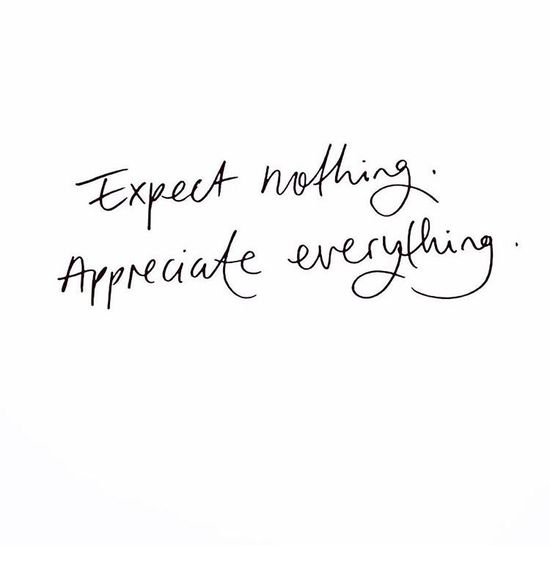 Expect nothing.
Appreciate everything.